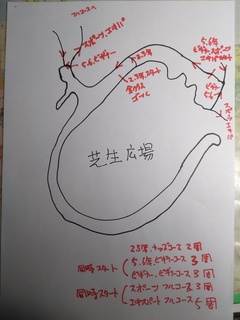 フルコース
スポーツ、エキスパ
5.6.ビギナー
2.3年
2.3年、スタート
全クラス
ゴール
5.6年
ビギナー、スポーツ
エキスパートスタート
ビギナー
5.6年
スポーツ、エキスパ
芝生広場
2.3年、キッズコース 2周
同時スタート
5.6年ビギナーコース 3周
ビギナー、ビギナーコース 3周
同時スタート
スポーツ フルコース 3周
エキスパート フルコース 5周